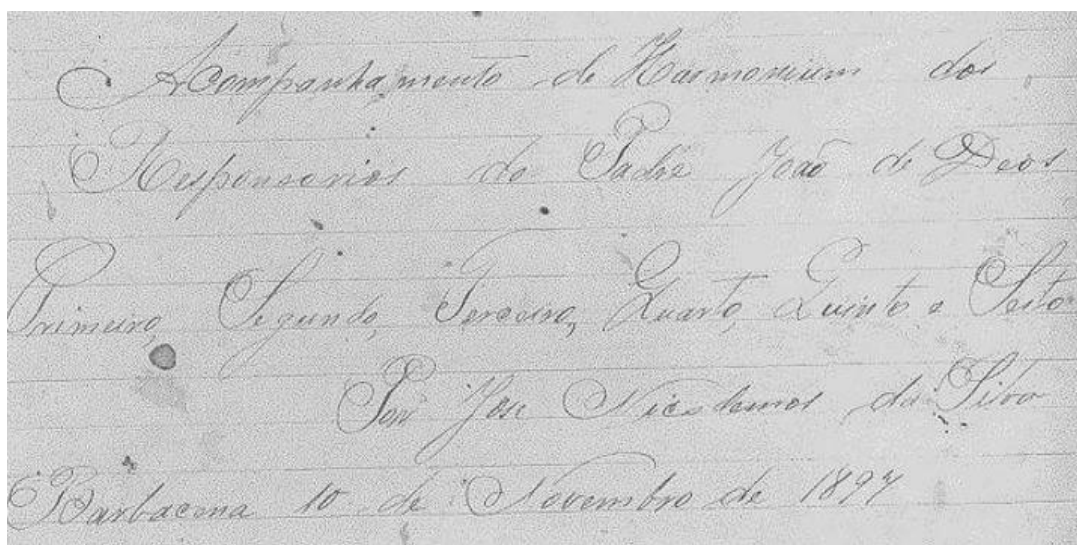 Acompanhamento de Harmonium dos
Responsorios do Padre João de Deos
Primeiro, Segundo, Terceiro, Quarto, Quinto e Sesto
Por José Nicodemos da Silva
Barbacena 10 de Novembro de 1897